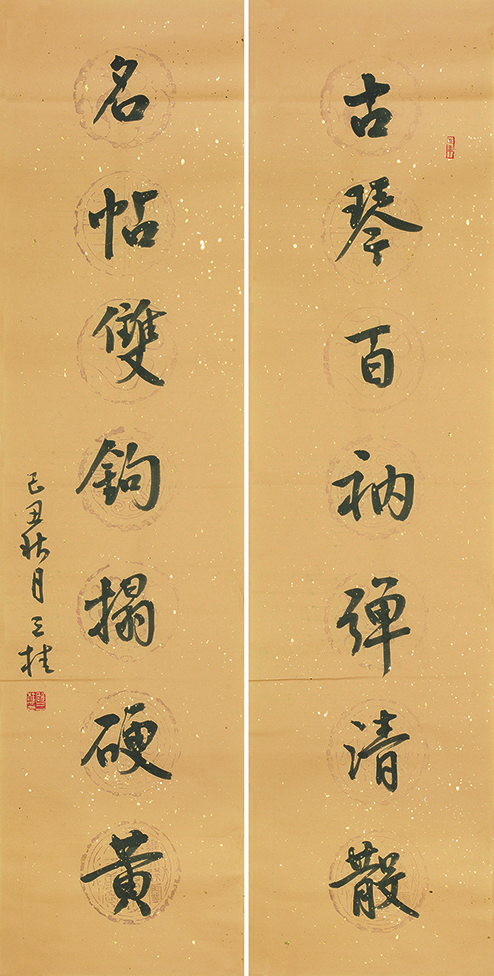 古琴百衲彈清散
名帖雙鉤搨硬黃
己丑秋月三桂